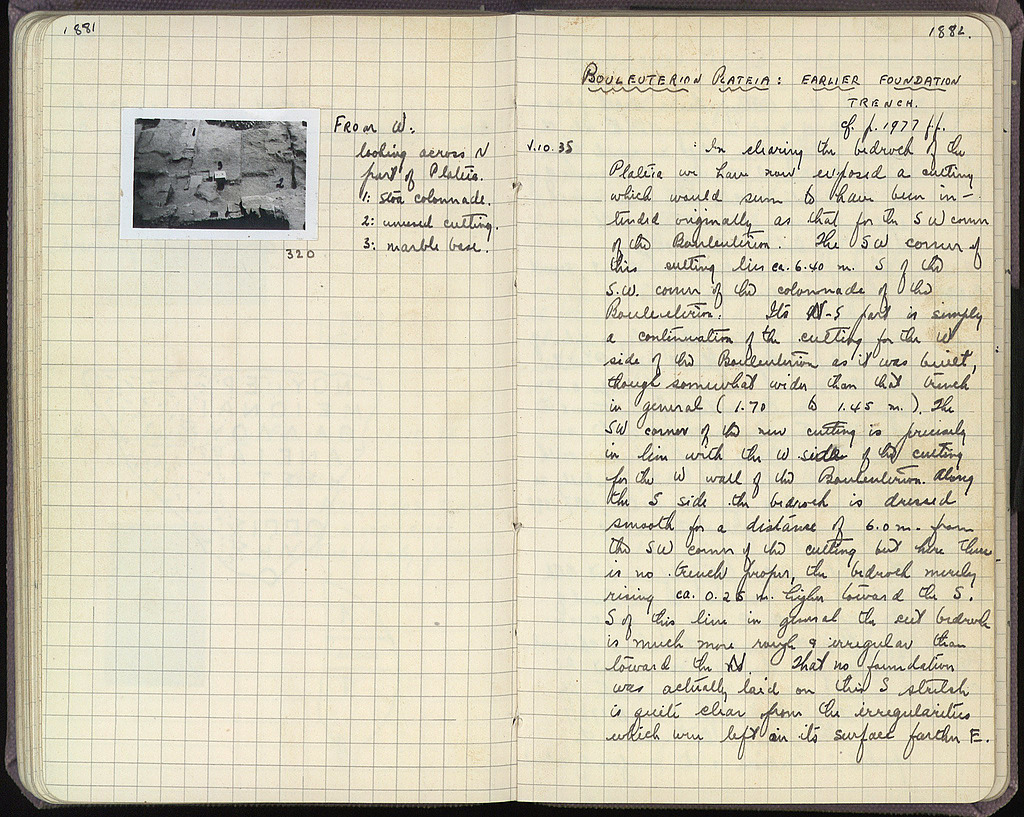 1881
FROM W:
looking across N
part of Plateia.
1: stoa colonnade.
2: unused cutting.
3: marble base.
320
1882.
BOULEUTERION PLATEIA: EARLIER FOUNDATION
TRENCH.
cf. p. 1977 ff.
V.10.35
In clearing the bedrock of the
Plateia we have now exposed a cutting
which would seem to have been in-
tended originally as that for the SW corner
of the Bouleuterion. The SW corner of
this cutting lies ca. 6.40 m. S of the
S.W. corner of the colonnade of the
Bouleuterion. Its N-S part is simply
a continuation of the cutting for the W
side of the Bouleuterion as it was built,
though somewhat wider than that trench
in general (1.70 to 1.45 m.). The
SW corner of the new cutting is precisely
in line with the W side of the cutting
for the W wall of the Bouleuterion. Along
the S side the bedrock is dressed
smooth for a distance of 6.0 m. from
the SW corner of the cutting but here there
is no trench proper, the bedrock merely
rising ca. 0.25 m. higher toward the S.
S of this line in general the cut bedrock
is much more rough & irregular than
toward the N. That no foundation
was actually laid on this S stretch
is quite clear from the irregularities
which were left in its surface farther E.